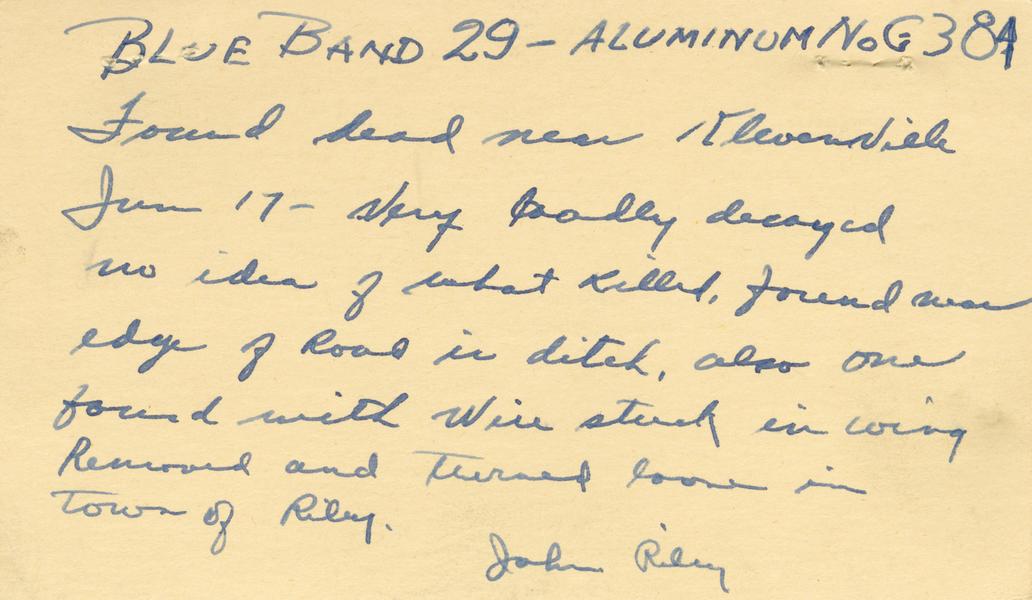 BLUE BAND 29 - ALUMINUM No G 384
Found dead near Klevenville
Jun 17 - Very badly decayed
no idea of what killed, found near
edge of Road in ditch, also one
found with Wire stuck in wing
Removed and Turned loose in
Town of Riley.
John Riley